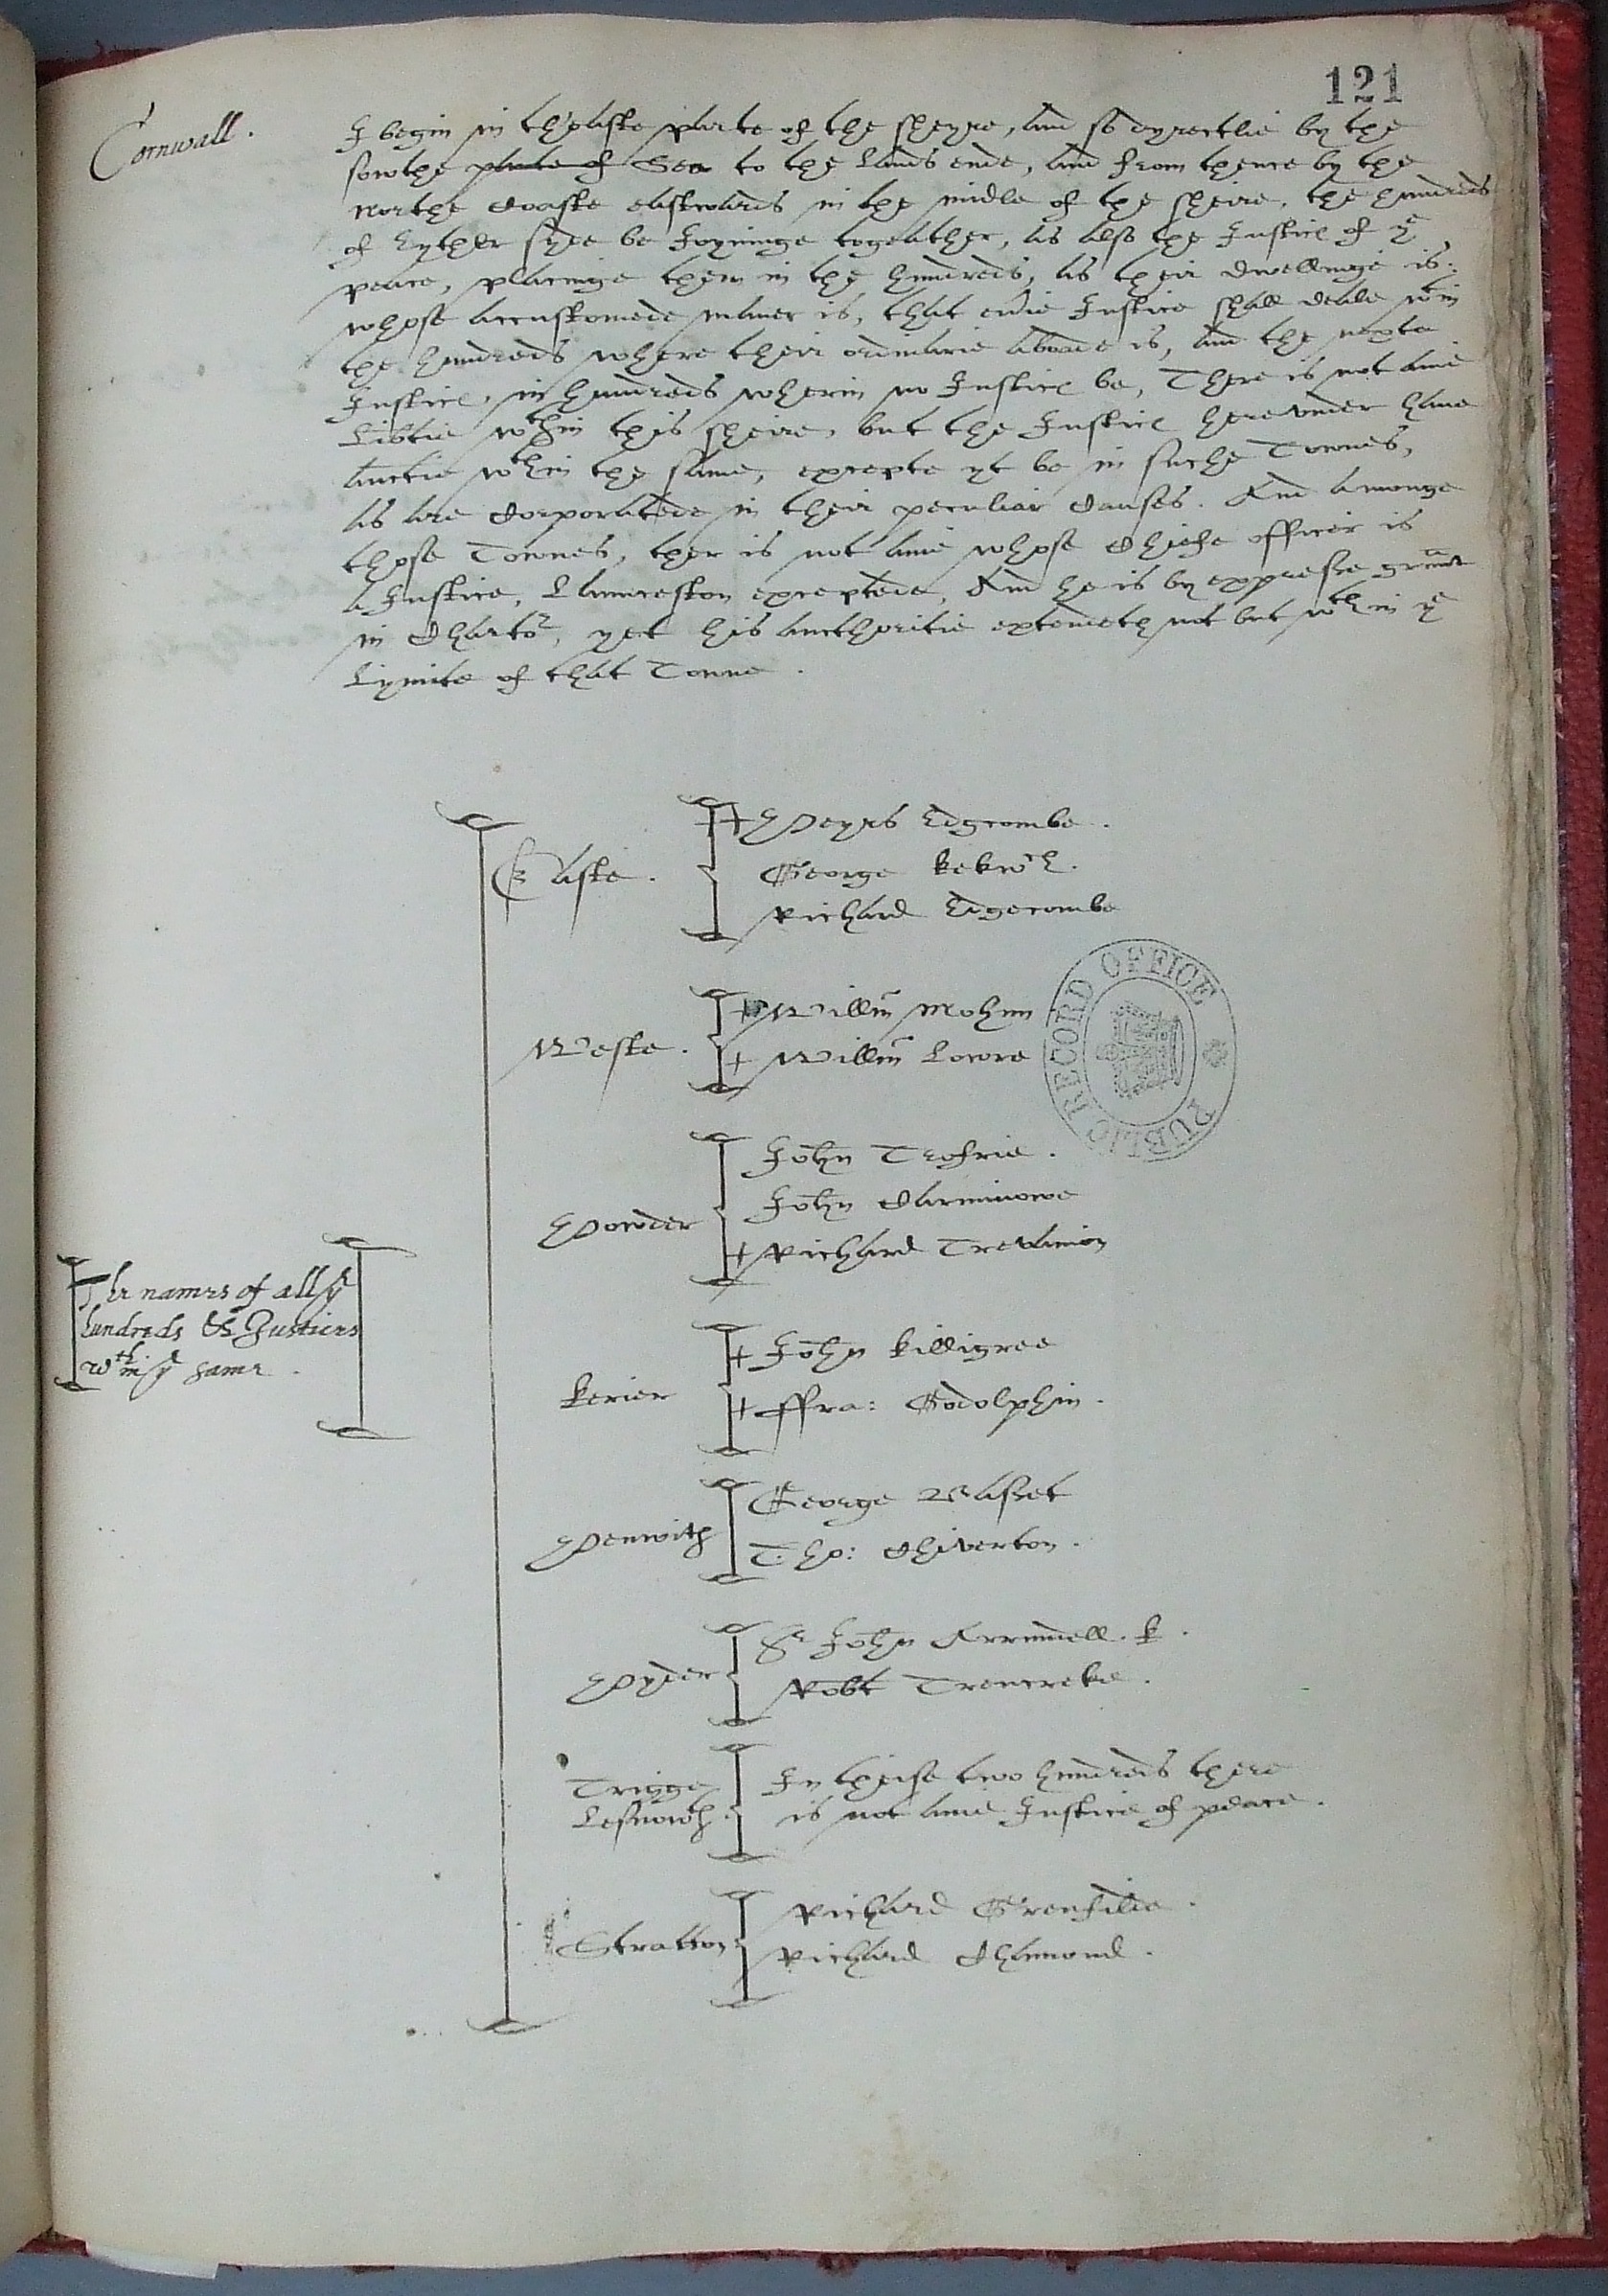 121
Cornwall.
I begin in th'easte parte of the sheyre, and so dyrectlie by the
sowthe parte of Sea to the Lands ende, and from thence by the
Northe Coaste eastwards in the midle of the sheire. the hundreds
of eyther syde be Joyninge togeather, as also the Justices of ye
peace, placinge them in the hundreds, as their dwellinge is.
whose accustomede maner is, that eu'ie Justice shall deale wthin
the hundreds where their ordinarie aboade is, and the nexte
Justices, in hundreds wherin no Justices be, There is not anie
Lib'tie wthin this sheire, but the Justices herevnder have
auctie wthin the same, excepte yt be in suche Townes,
as are Corporatede in their peculiar Causes. And amonge
those Townes, ther is not anie whose Chiefe officer is
a Justice, Launceston exceptede, And he is by expresse graunt
in Chartor, yet his aucthoritie extendeth not but wthin ye
Lymite of that Towne.
The names of all ye
hundreds & Justices
wthin ye same.
Easte.
+ Peyrs Edgcombe.
George kekwch.
Richard Edgecombe
Weste.
+ Willm Mohun
+ Willm Lowre
Powder
John Trefrie.
John Carminowe
+ Richard Trevanion
kerier
+ John killigree
+ ffra: Godolphin.
Penwith
George Basset
Tho: Chiverton.
Pyder
Sr John Arrundell. k.
Robt Trencreke.
Trigge
Lesnowth.
In theise two hundreds there
is not anie Justice of peace.
Stratton
Richard Grenfilde.
Richard Chamond.
PUBLIC RECORD OFFICE